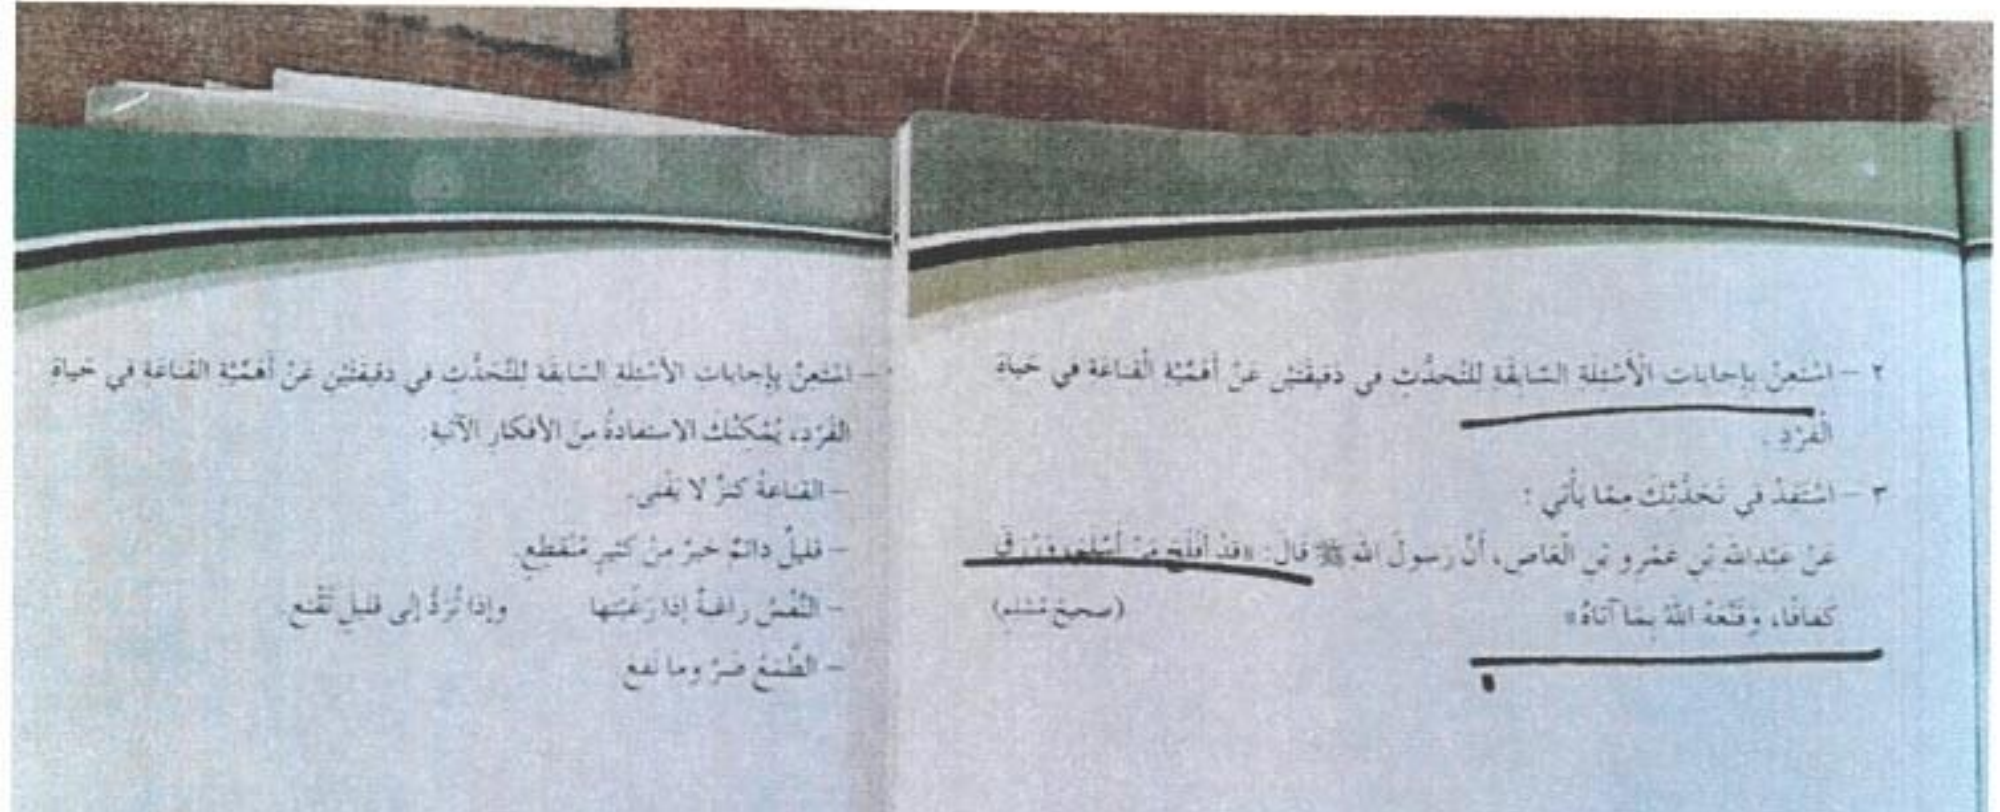 ٢ - اسْتَعِنْ بِإِجَابَات الْأَسْئِلَة السَّابِقَة لِلتَّحَدُّثِ فِي دَقِيقَتَيْنِ عَنْ أَهَمِّيَّة الْقَنَاعَة فِي حَيَاةِ
الْفَرْدِ .
٣ - اسْتَفِدْ فِي تَحَدُّثِكَ مِمَّا يَأْتِي :
عَنْ عَبْدِاللَّه بْنِ عَمْرِو بْنِ الْعَاص، أَنَّ رَسولَ اللَّه ﷺ قَالَ: «قَدْ أَفْلَحَ مَنْ أَسْلَمَ، وَرُزِقَ
كَفَافًا، وَقَنَّعَهُ اللَّهُ بِمَا آتَاهُ» (صحيحُ مُسْلِم)
- اسْتَعِنْ بِإِجَابَات الأَسْئِلَة السَّابِقَة لِلتَّحَدُّثِ فِي دَقِيقَتَيْنِ عَنْ أَهَمِّيَّة القَنَاعَةِ فِي حَيَاةِ
الفَرْدِ، يُمْكِنُكَ الاسْتِفَادَةُ مِنَ الأَفْكَارِ الآتِيَةِ:
- القَنَاعَةُ كَنْزٌ لا يَفْنَى.
- قَلِيلٌ دَائِمٌ خَيْرٌ مِنْ كَثِيرٍ مُنْقَطِعٍ.
- النَّفْسُ رَاغِبَةٌ إِذَا رَغَّبْتَهَا وَإِذَا تُرَدُّ إِلَى قَلِيلٍ تَقْنَعِ
- الطَّمَعُ ضَرَّ وما نَفَعَ